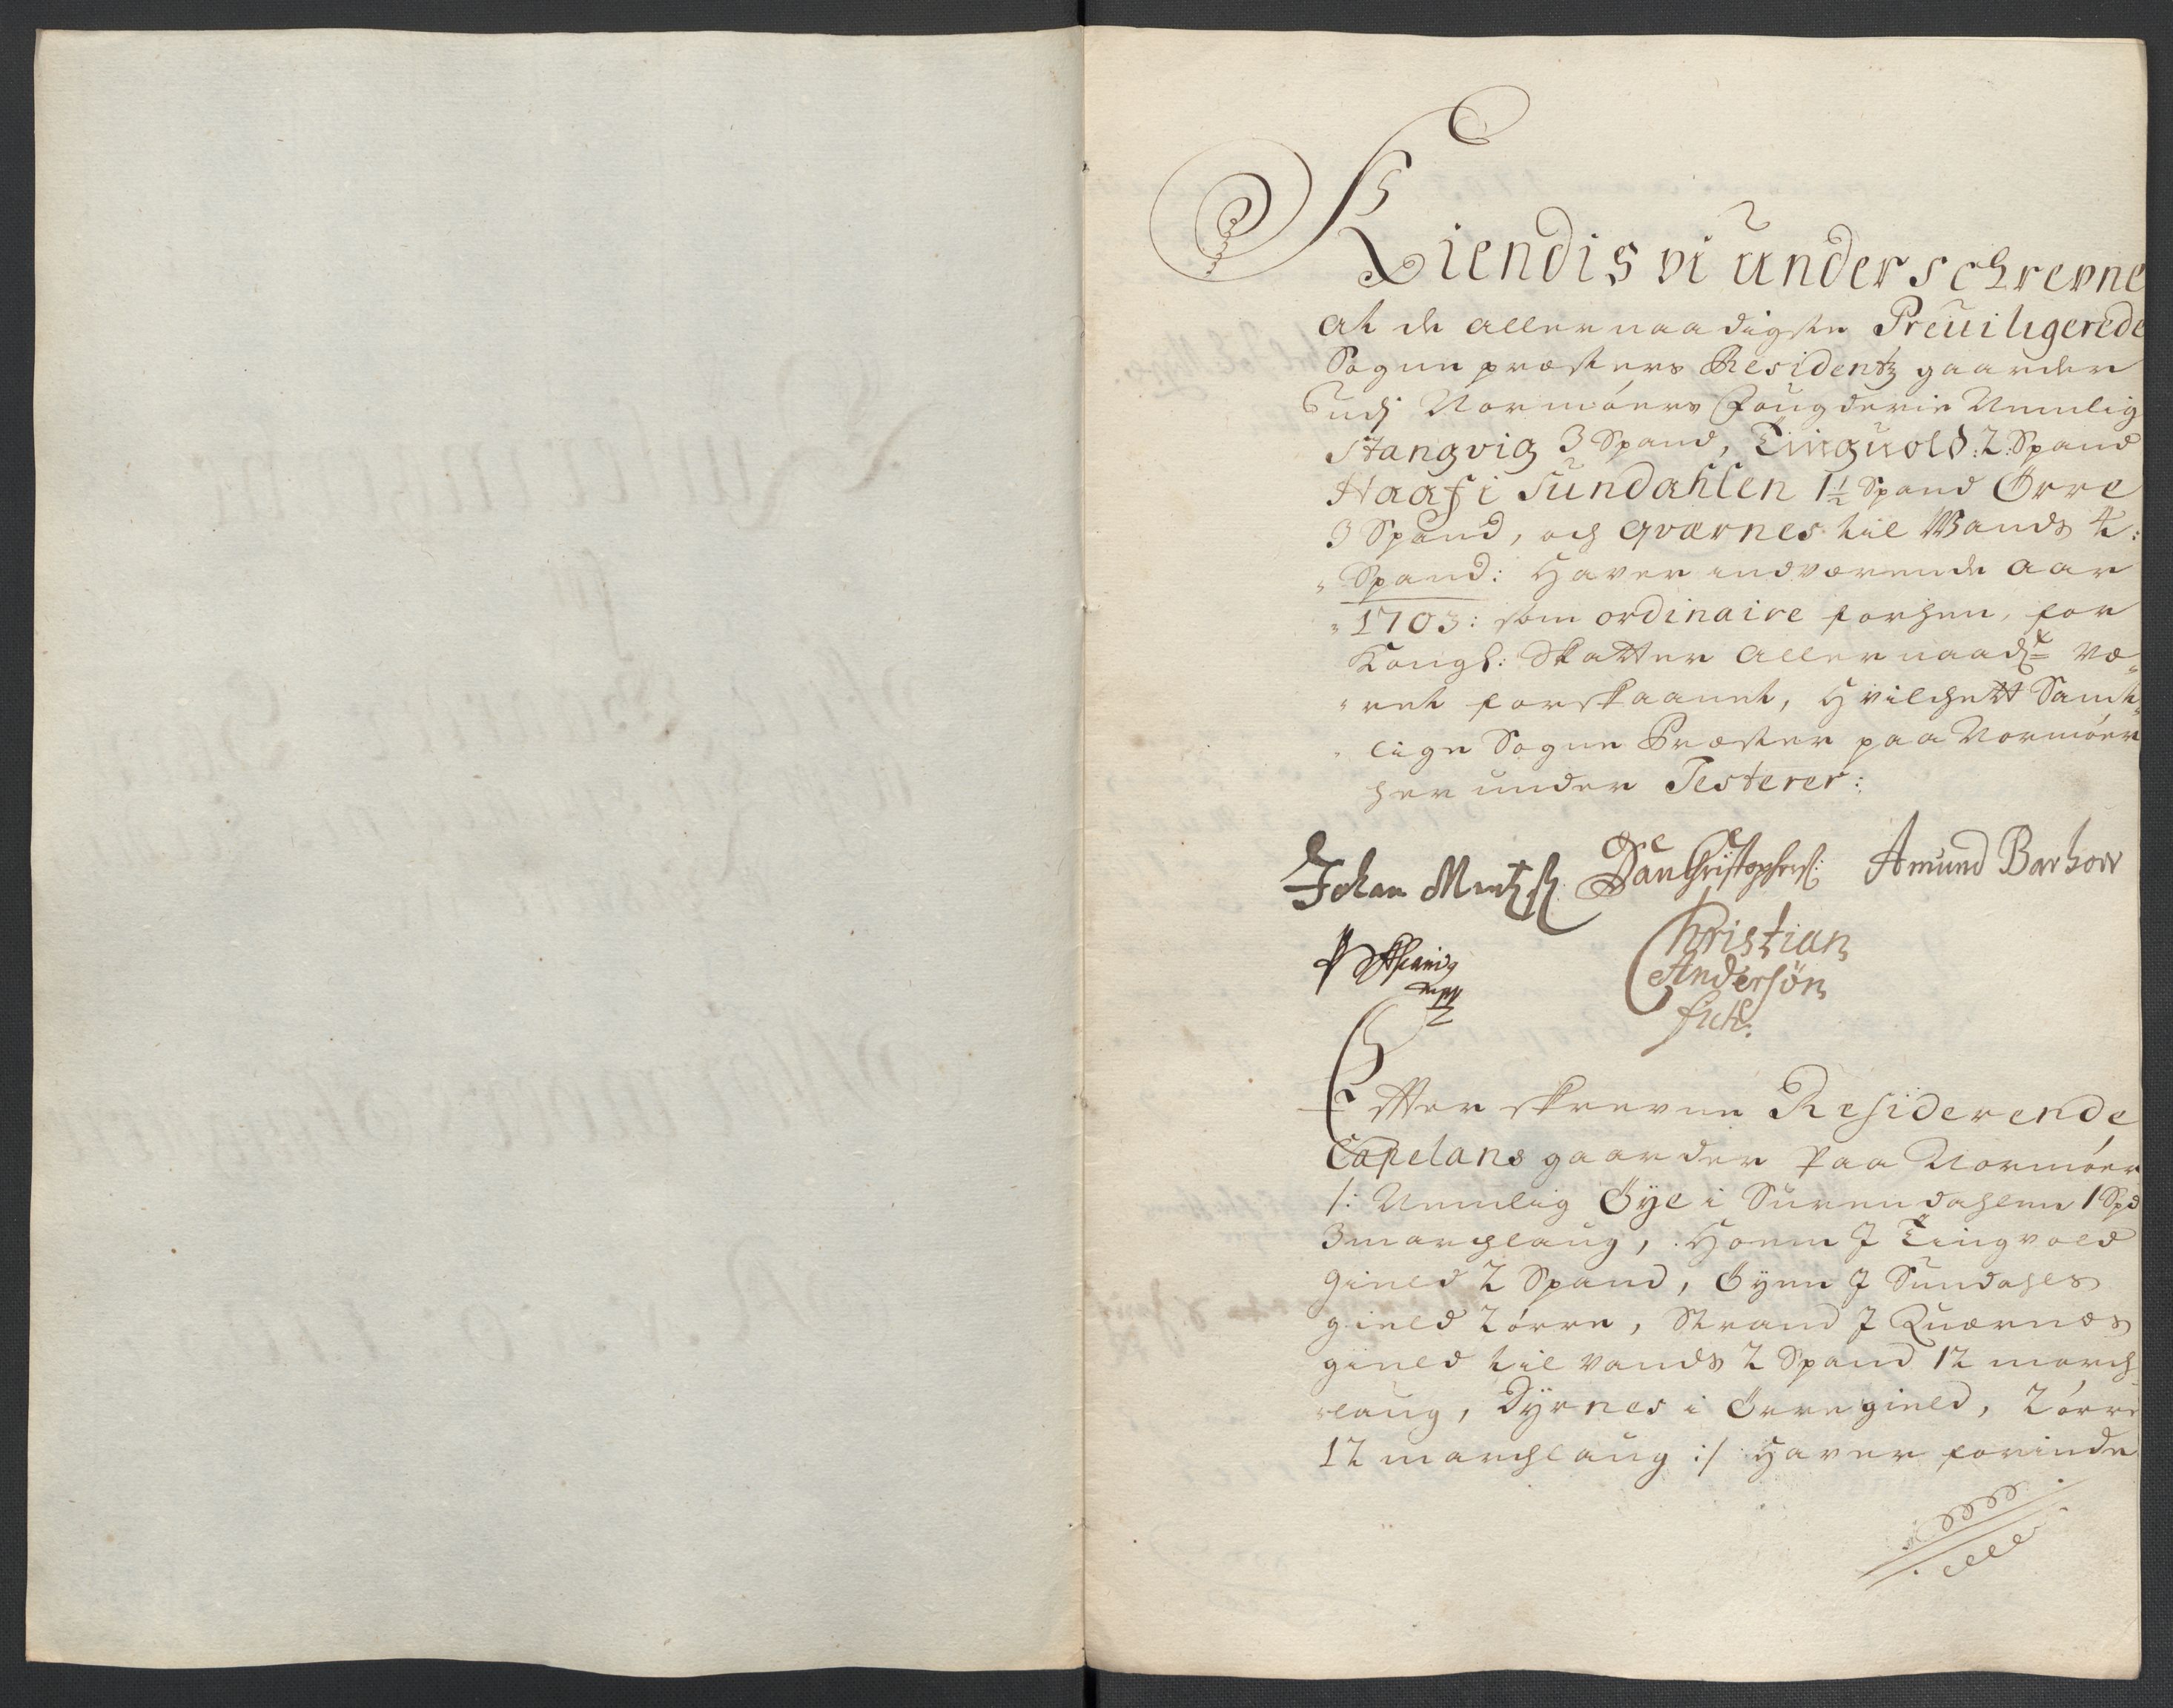 Kiendis vi underschrevne
at de allernaadigste Preuiligerede
Sogne præsters Residentz gaarder
udj Normóers Fougderie Nemlig
Stangvig 3 Spand, Tinguold: 2 Spand
Haaf i Sundahlen 1½ Spand Örre
3 Spand, och Qværnes til Wands 4:
Spand: Haver indværende Aar
1703: som ordinaire forhen, for
Kongl: Skatter Allernaadst væ-
ret forskaanet, Hvilchett Samt-
lige Sogne Præster paa Normóer
her under Testerer:
Johan Mentzß Dan Christophersß: Amund Barhow
Christian
Andersön
mpp
Efter skrevne Residerende
Capelans gaarder paa Normóer
/: Nemlig Öye i Surendahlen 1 Spd
3 marchlaug, Hoem J Tingvold
Gield 2 Spand, Öyen J Sundahls
gield 2 örre, Strand J Quærnæs
gield til vands 2 Spand 12 march-
laug, Dyrnes i Örregield, 2 örre
12 marchlaug :/ Haver forinde